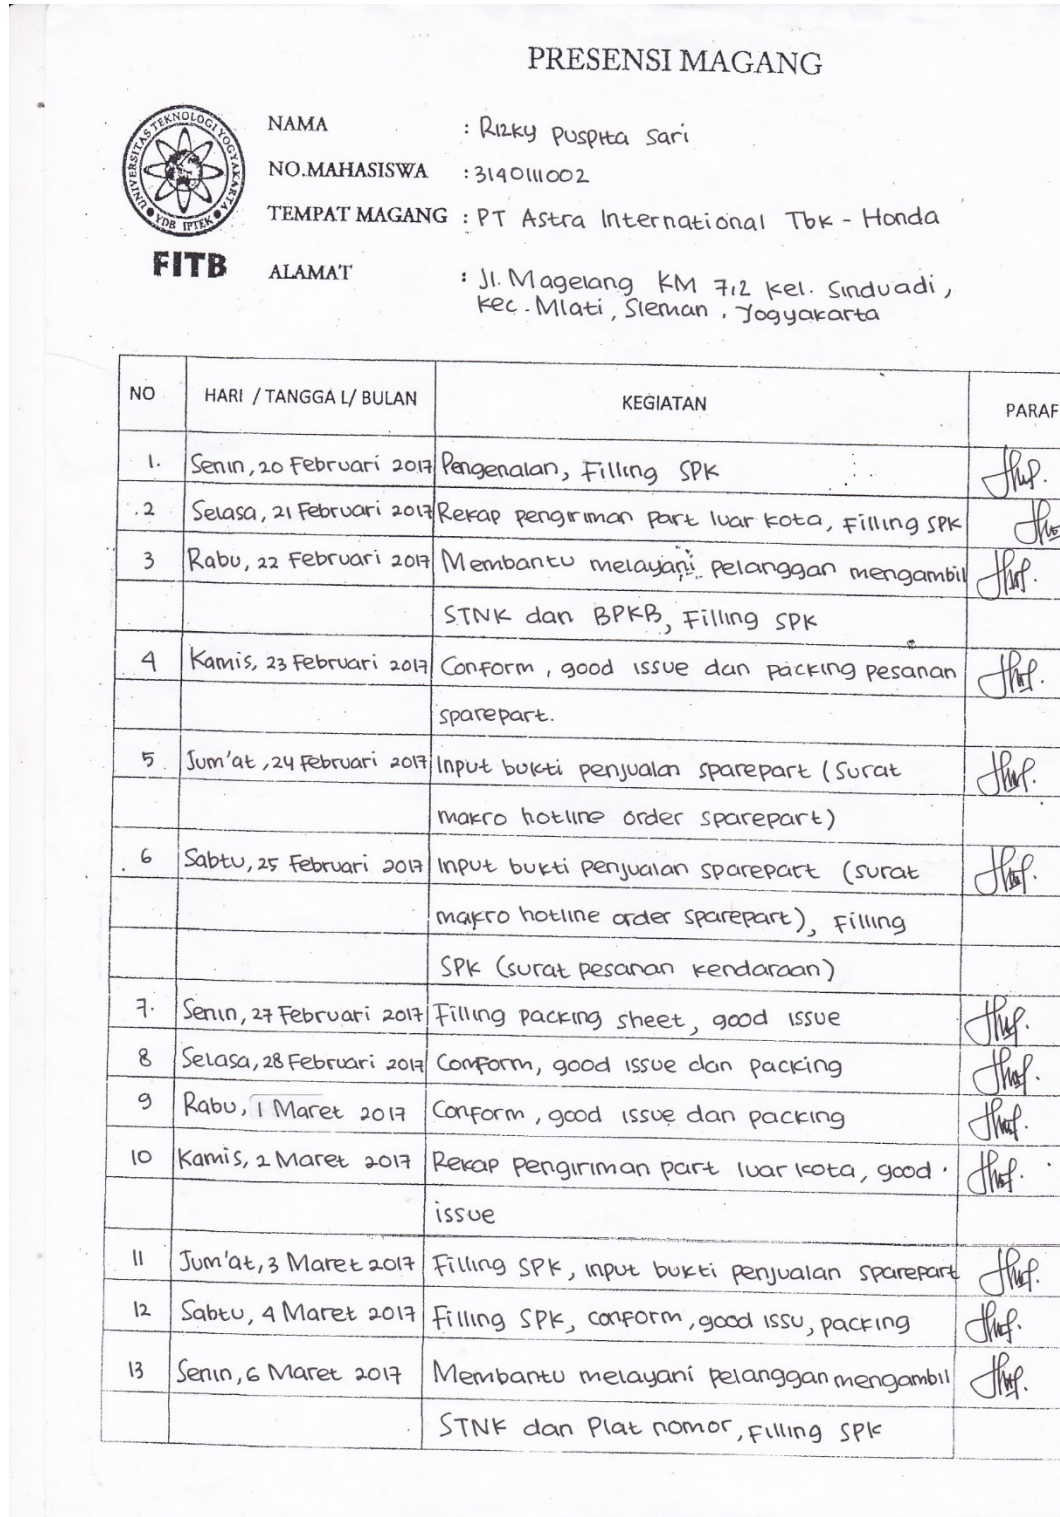 PRESENSI MAGANG
UNIVERSITAS TEKNOLOGI YOGYAKARTA
YDB IPTEK
FITB
NAMA : Rizky Puspita Sari
NO.MAHASISWA : 3140111002
TEMPAT MAGANG : PT Astra International Tbk - Honda
ALAMAT : Jl. Magelang KM 7,2 Kel. Sinduadi,
Kec. Mlati, Sleman, Yogyakarta
NO HARI / TANGGA L/ BULAN KEGIATAN PARAF
1. Senin, 20 Februari 2017 Pengenalan, Filling SPK
2 Selasa, 21 Februari 2017 Rekap pengiriman part luar kota, Filling SPK
3 Rabu, 22 Februari 2017 Membantu melayani pelanggan mengambil
STNK dan BPKB, Filling SPK
4 Kamis, 23 Februari 2017 Conform, good issue dan packing pesanan
sparepart.
5 Jum'at, 24 Februari 2017 Input bukti penjualan sparepart (Surat
makro hotline order sparepart)
6 Sabtu, 25 Februari 2017 Input bukti penjualan sparepart (surat
makro hotline order sparepart), Filling
SPK (surat pesanan kendaraan)
7. Senin, 27 Februari 2017 Filling packing sheet, good issue
8 Selasa, 28 Februari 2017 Conform, good issue dan packing
9 Rabu, 1 Maret 2017 Conform, good issue dan packing
10 Kamis, 2 Maret 2017 Rekap pengiriman part luar kota, good
issue
11 Jum'at, 3 Maret 2017 Filling SPK, input bukti penjualan sparepart
12 Sabtu, 4 Maret 2017 Filling SPK, conform, good issu, packing
13 Senin, 6 Maret 2017 Membantu melayani pelanggan mengambil
STNK dan Plat nomor, Filling SPK